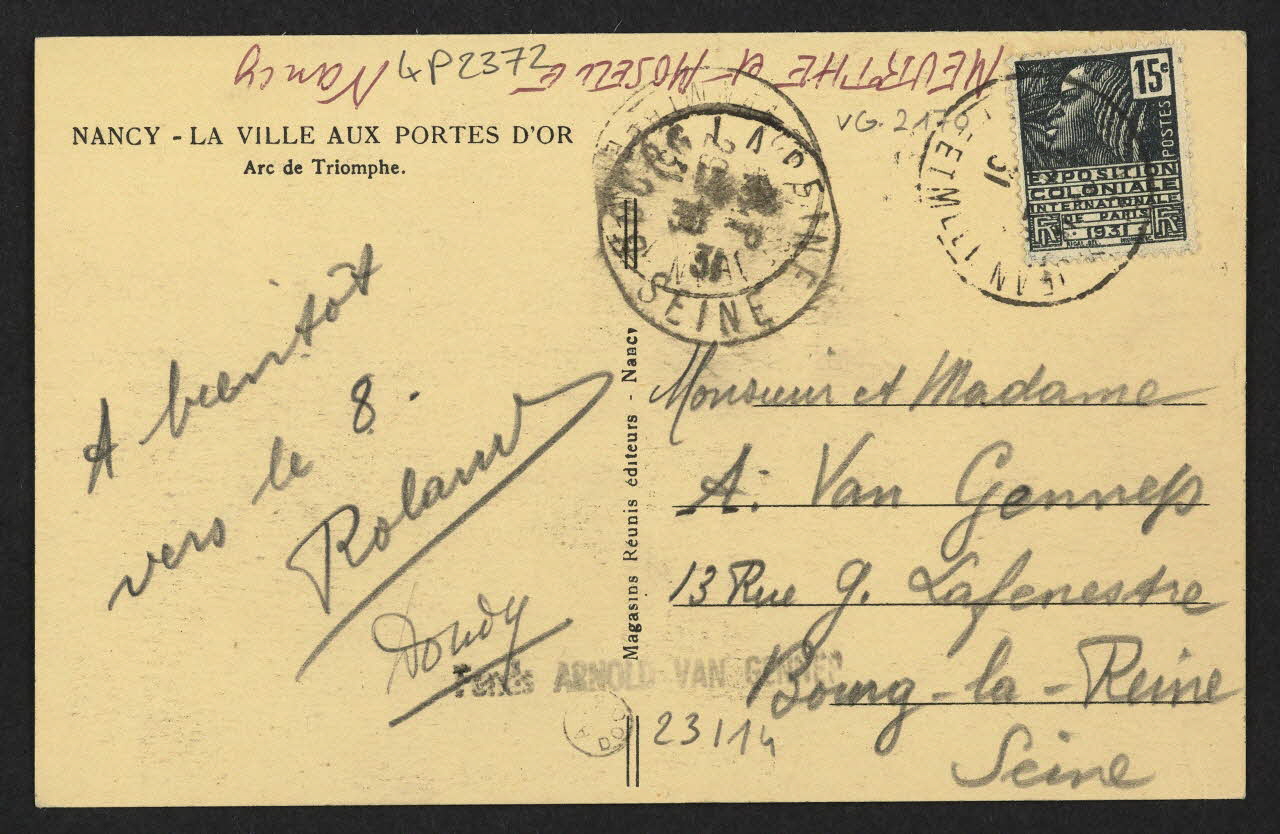 MEURTHE et MOSELLE Nancy
4P2372
VG. 2170
NANCY - LA VILLE AUX PORTES D'OR
Arc de Triomphe.
A bientôt
vers le 8.
Roland
Doudy
Magasins Réunis éditeurs - Nancy
BOURG LA REINE
SEINE
31
15c
POSTES
EXPOSITION
COLONIALE
INTERNATIONALE
DE PARIS
1931
Monsieur et Madame
A. Van Gennep
13 Rue G. Lafenestre
Bourg-la-Reine
Seine
Fonds ARNOLD VAN GENNEP
23/14